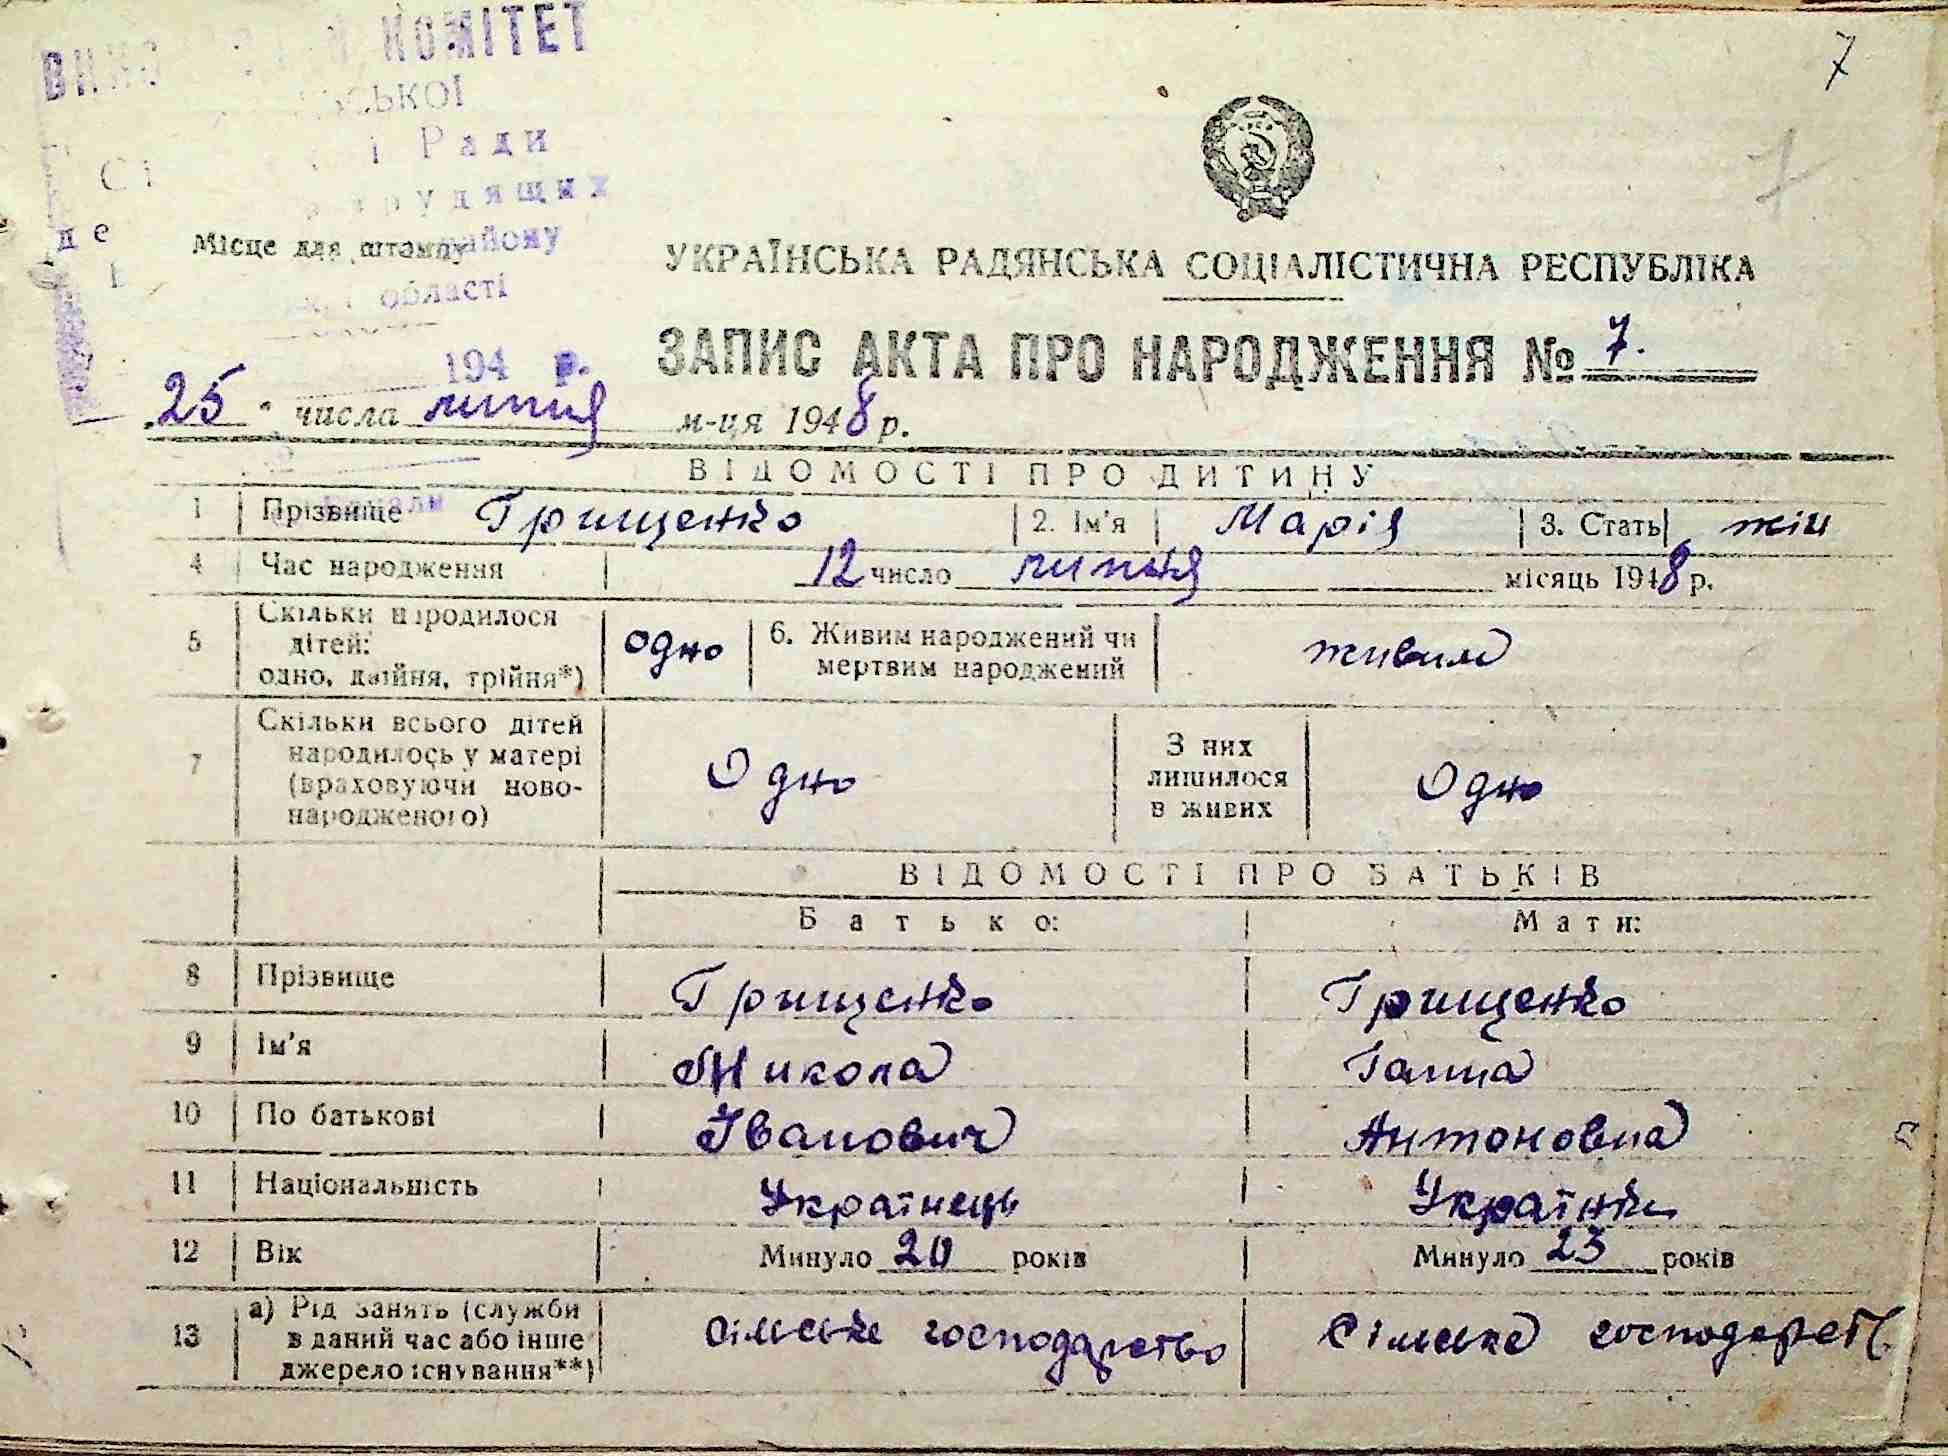 7
КОМІТЕТ
Ради
трудящих
Місце для штампу
району
області
194 р.
УКРАЇНСЬКА РАДЯНСЬКА СОЦІАЛІСТИЧНА РЕСПУБЛІКА
ЗАПИС АКТА ПРО НАРОДЖЕННЯ № 7.
25 числа липня м-ця 1948 р.
ВІДОМОСТІ ПРО ДИТИНУ
1 Прізвище Грищенко 2. Ім'я Марія 3. Стать жін
4 Час народження 12 число липня місяць 1948 р.
5 Скільки народилося дітей: одно, двійня, трійня*) одно 6. Живим народжений чи мертвим народжений живим
7 Скільки всього дітей народилось у матері (враховуючи ново-народженого) Одно З них лишилося в живих Одно
ВІДОМОСТІ ПРО БАТЬКІВ
Батько: Мати:
8 Прізвище Грищенко Грищенко
9 Ім'я Микола Ганна
10 По батькові Іванович Антоновна
11 Національність Українець Українка
12 Вік Минуло 20 років Минуло 23 років
13 а) Рід занять (служби в даний час або інше джерело існування**) сільське господарство Сільське господарств